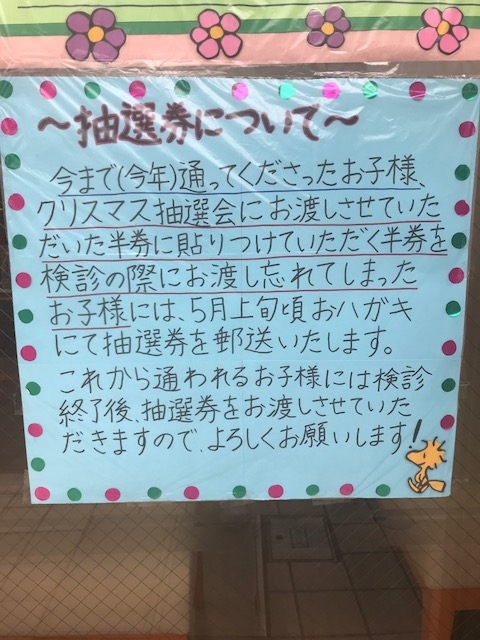 ～抽選券について～
今まで(今年)通ってくださったお子様、
クリスマス抽選会にお渡しさせていた
だいた半券に貼りつけていただく半券を
検診の際にお渡し忘れてしまった
お子様には、5月上旬頃おハガキ
にて抽選券を郵送いたします。
これから通われるお子様には検診
終了後、抽選券をお渡しさせていた
だきますので、よろしくお願いします!